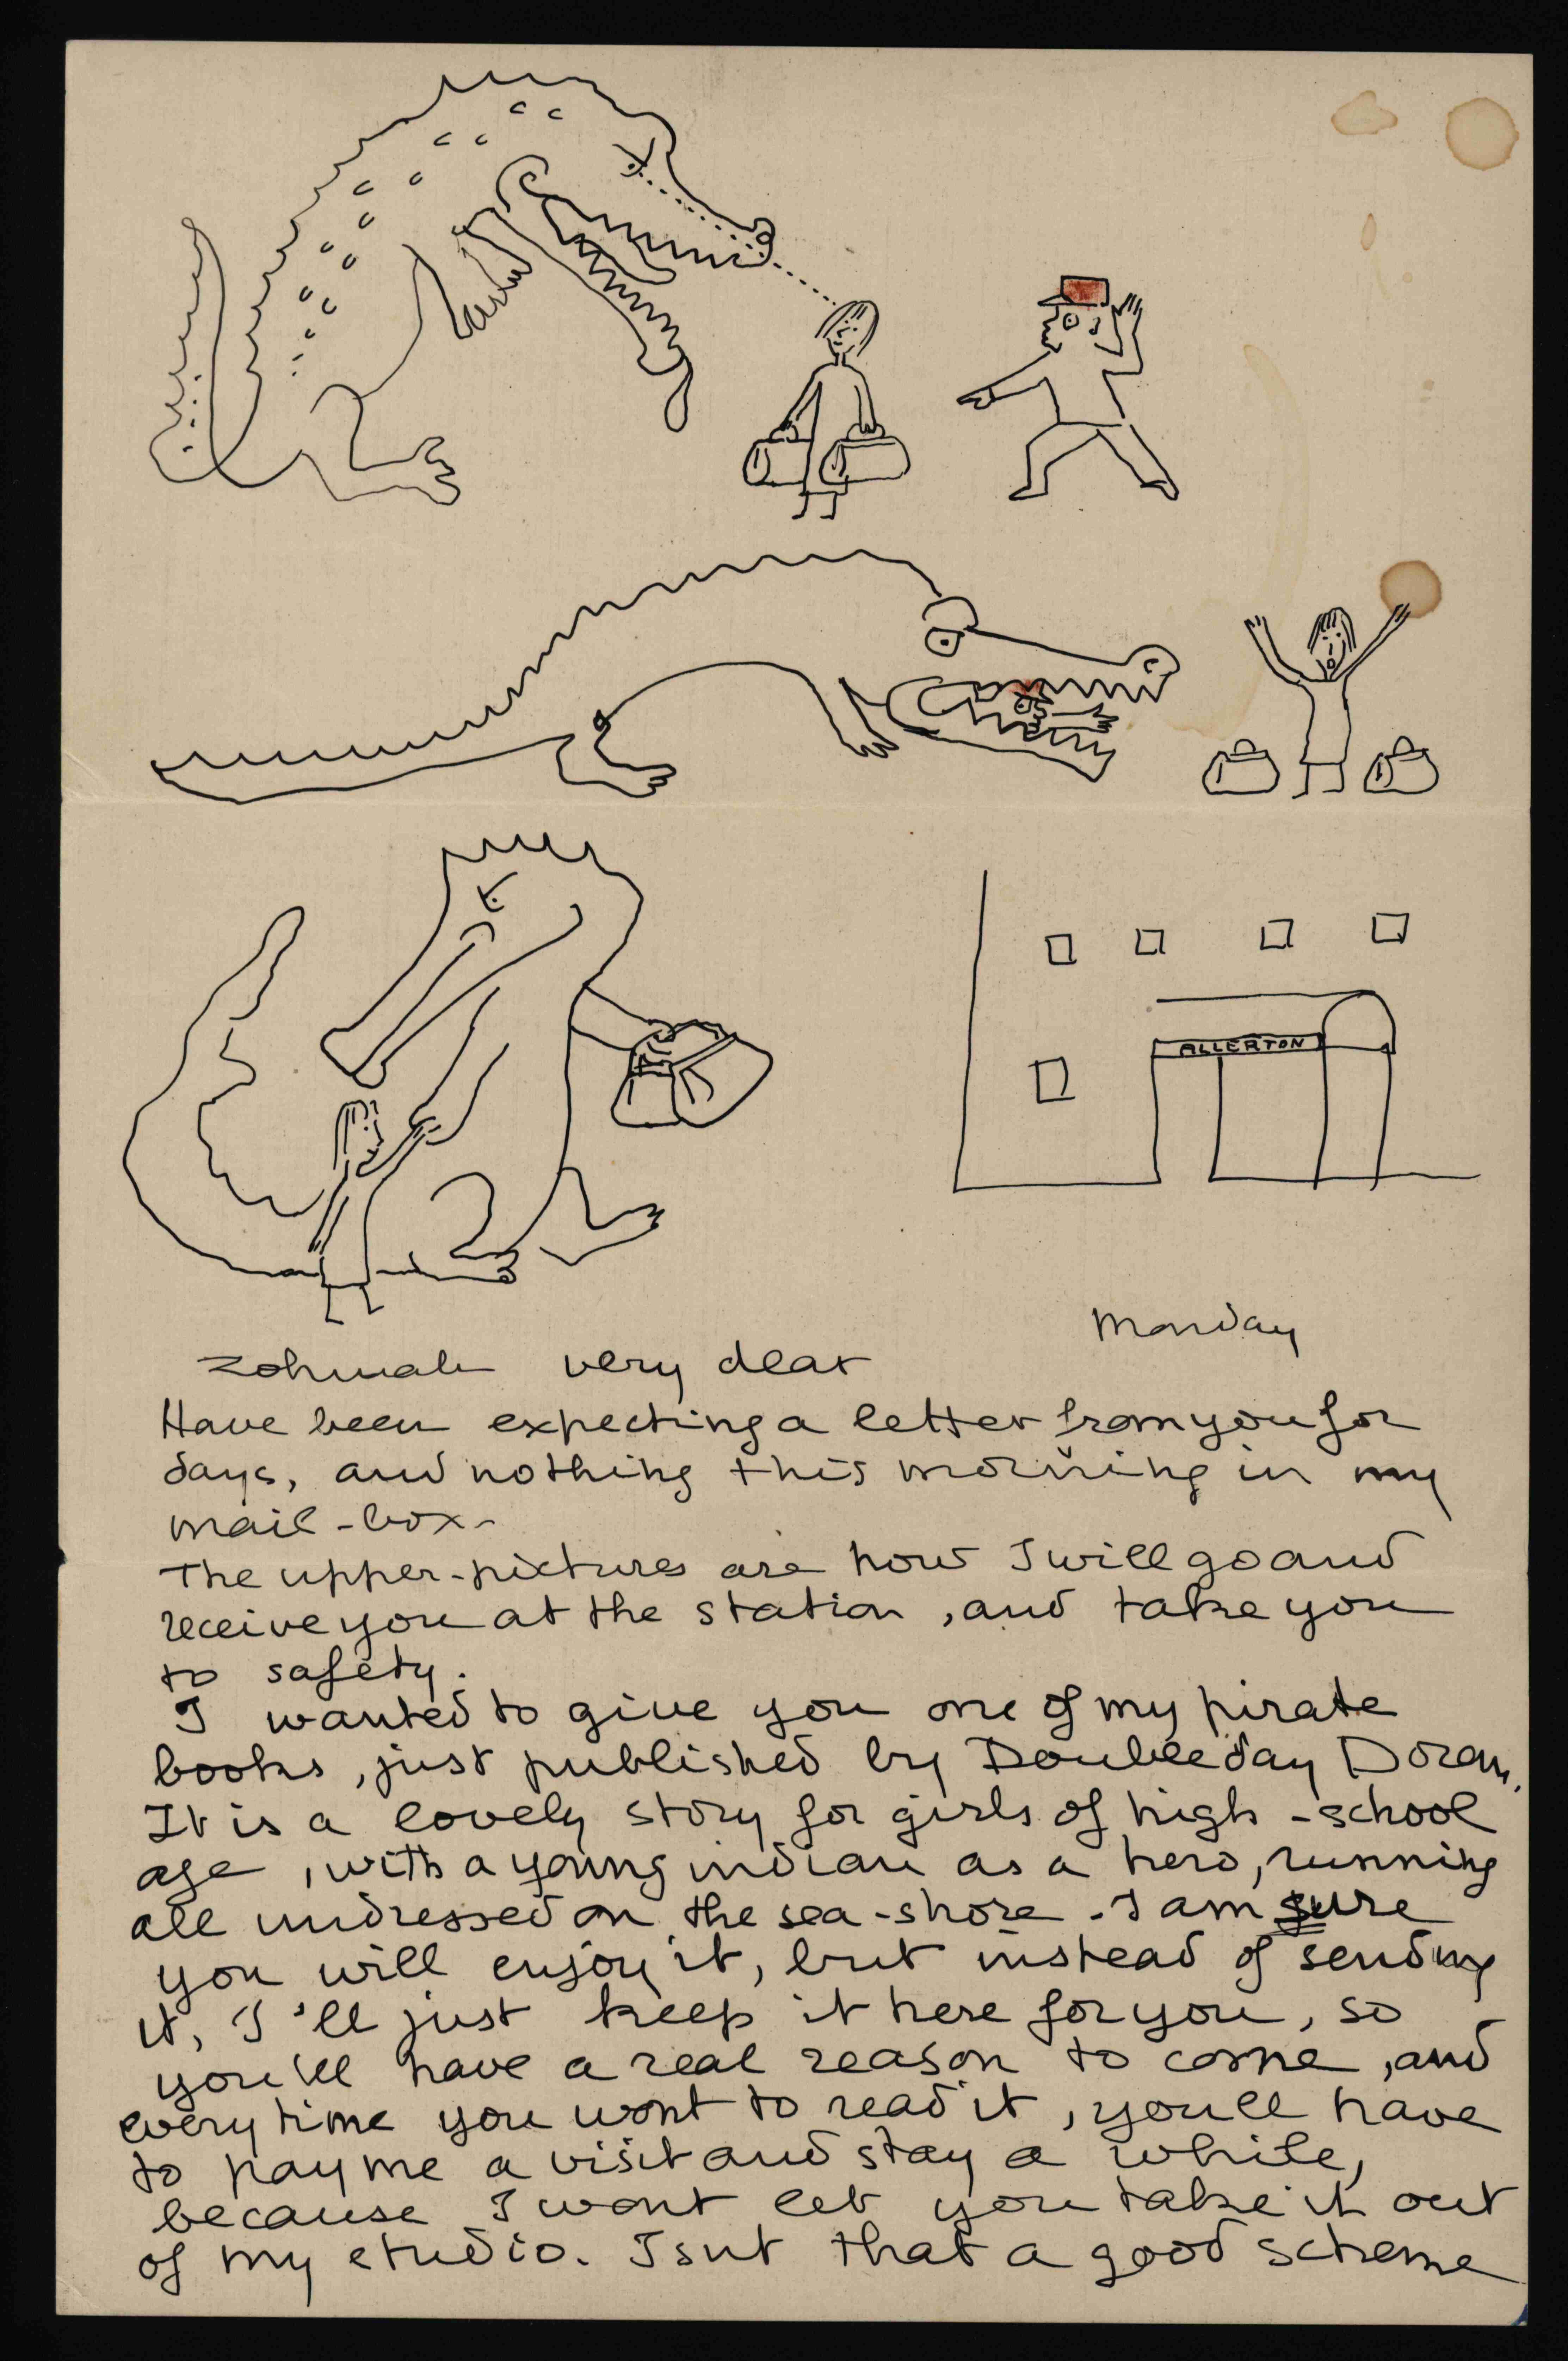 ALLERTON
Monday
Zohmah very dear
Have been expecting a letter from you for
days, and nothing this morning in my
mail-box-
The upper-pictures are how I will go and
receive you at the station, and take you
to safety.
I wanted to give you one of my pirate
books, just published by Doubleday Doran,
It is a lovely story for girls of high-school
age, with a young indian as a hero, running
all undressed on the sea-shore. I am sure
you will enjoy it, but instead of sending
it, I'll just keep it here for you, so
you'll have a real reason to come, and
every time you want to read it, youll have
to pay me a visit and stay a while,
because I wont let you take it out
of my studio. Isnt that a good scheme